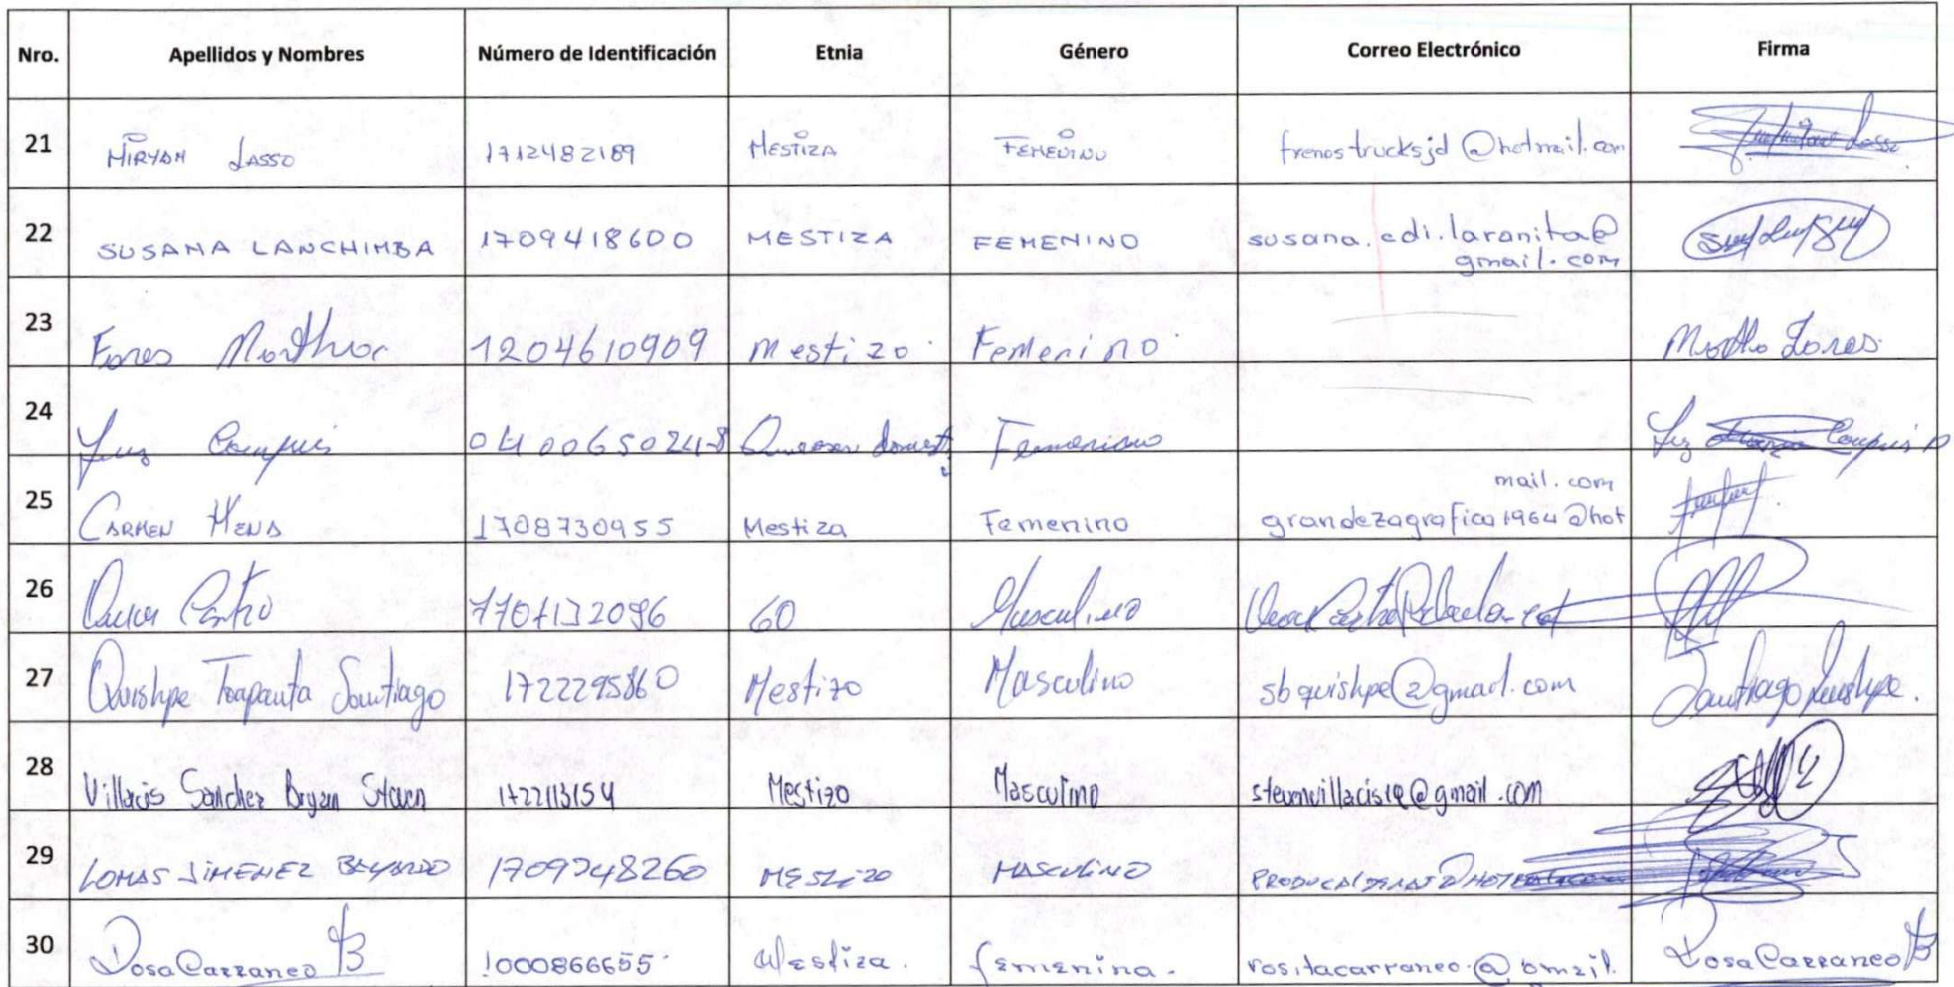 Nro. Apellidos y Nombres Número de Identificación Etnia Género Correo Electrónico Firma
21 MIRYAM LASSO 1712482189 MESTIZA FEMENINO frenostrucksjd@hotmail.com Lasso
22 SUSANA LANCHIMBA 1709418600 MESTIZA FEMENINO susana.cdi.laranita@
gmail.com
23 Fores Martha 1204610909 mestizo Femenino Martha Fores
24 Luz 0400650248 Femenino Luz
25 CARMEN MENA 1708730955 Mestiza Femenino mail.com
grandezagrafica1964@hot
26 Castro 60 Masculino
27 Quishpe Toapanta Santiago 1722295860 Mestizo Masculino sbquishpe@gmail.com Santiago Quishpe.
28 Villacis Sanchez Bryan Steven 1722113154 Mestizo Masculino
29 LOMAS JIMENEZ BAYARDO 1709248260 MESTIZO MASCULINO
30 Rosa Carranco B 1000866655 Mestiza. femenina. rositacarranco.@gmail. Rosa Carranco B